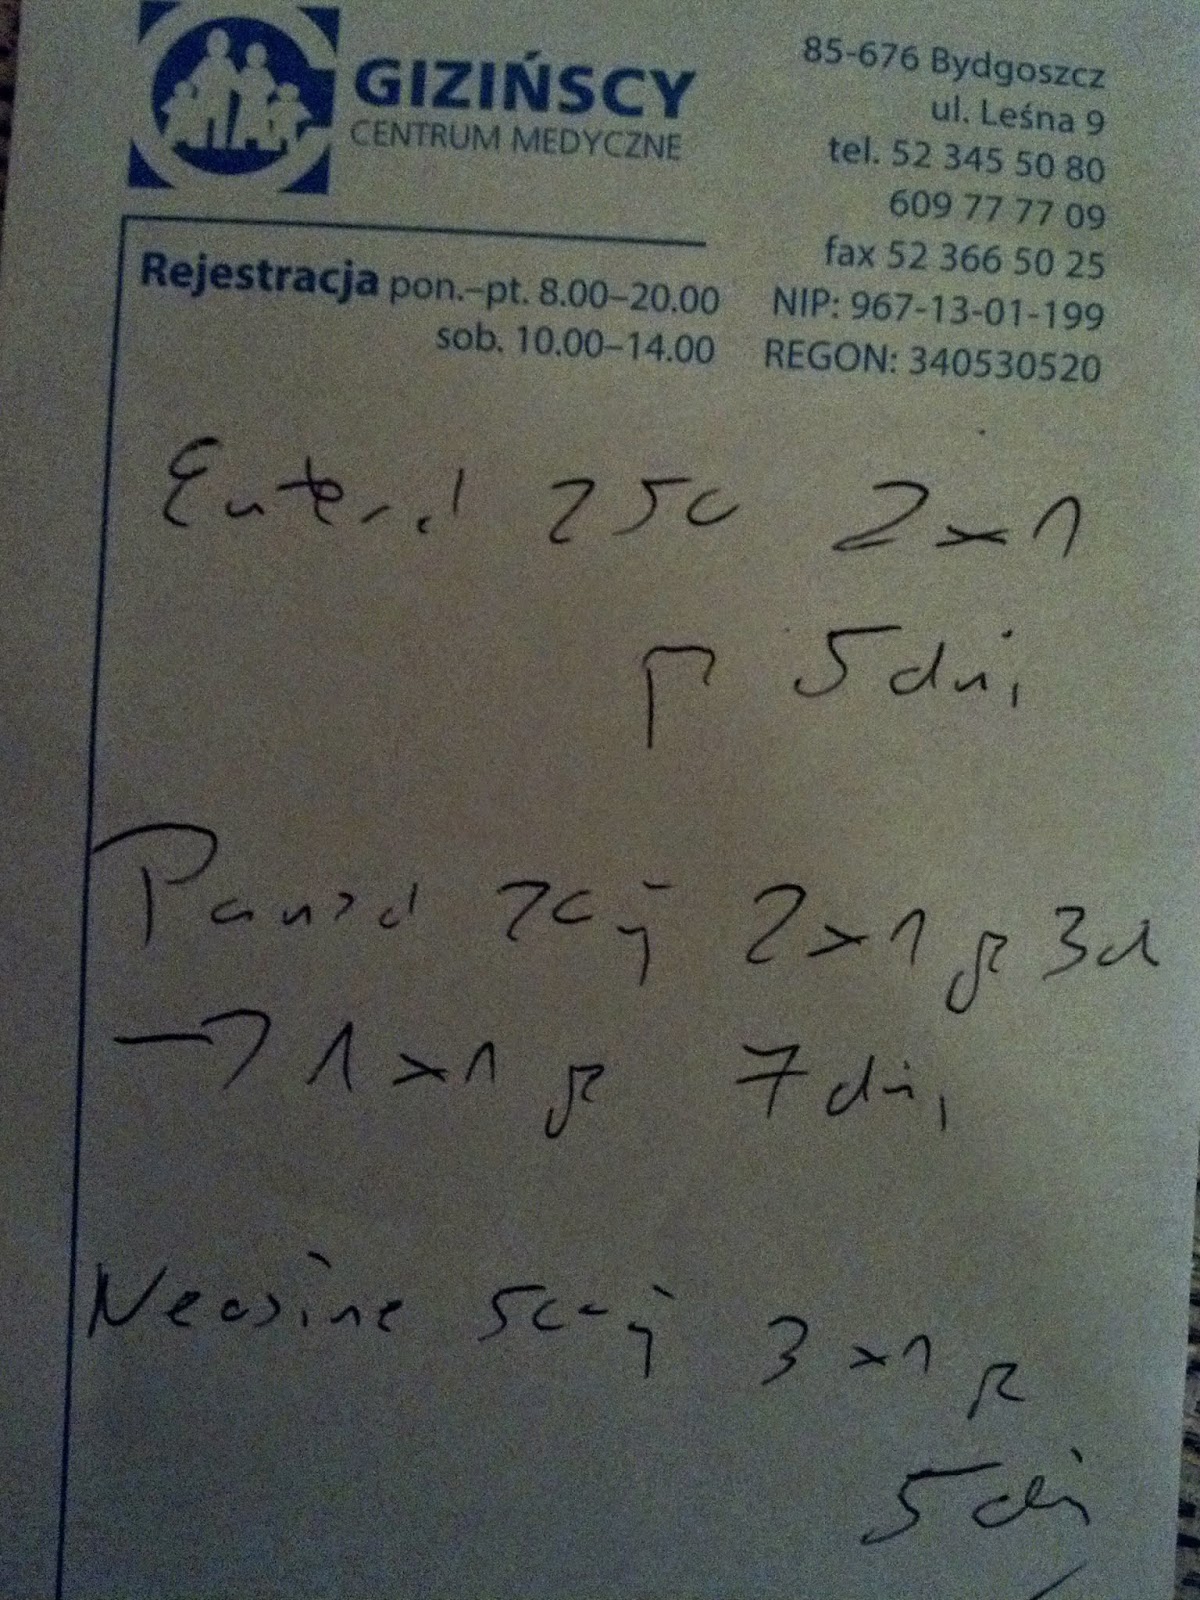 GIZIŃSCY
CENTRUM MEDYCZNE
85-676 Bydgoszcz
ul. Leśna 9
tel. 52 345 50 80
609 77 77 09
fax 52 366 50 25
NIP: 967-13-01-199
REGON: 340530520
Rejestracja pon.–pt. 8.00–20.00
sob. 10.00–14.00
Enterol 250 2x1
5 dni
2x1 3d
→ 1x1 7 dni
Neosine 3x1
5 dni